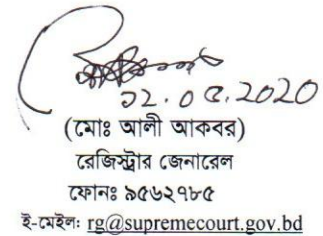 ১২.০৫.2020
(মোঃ আলী আকবর)
রেজিস্ট্রার জেনারেল
ফোনঃ ৯৫৬২৭৮৫
ই-মেইলঃ rg@supremecourt.gov.bd